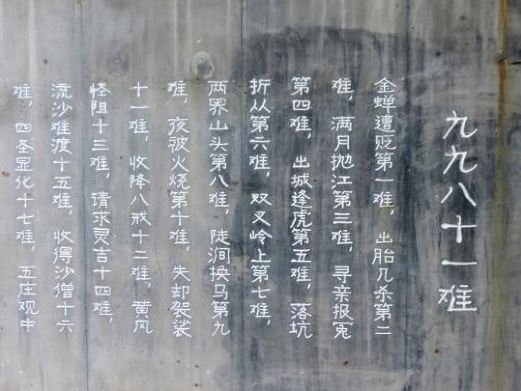 九九八十一难
金蝉遭贬第一难，出胎几杀第二
难，满月抛江第三难，寻亲报冤
第四难，出城逢虎第五难，落坑
折从第六难，双叉岭上第七难，
两界山头第八难，陡涧换马第九
难，夜被火烧第十难，失却袈裟
十一难，收降八戒十二难，黄风
怪阻十三难，请求灵吉十四难，
流沙难渡十五难，收得沙僧十六
难，四圣显化十七难，五庄观中